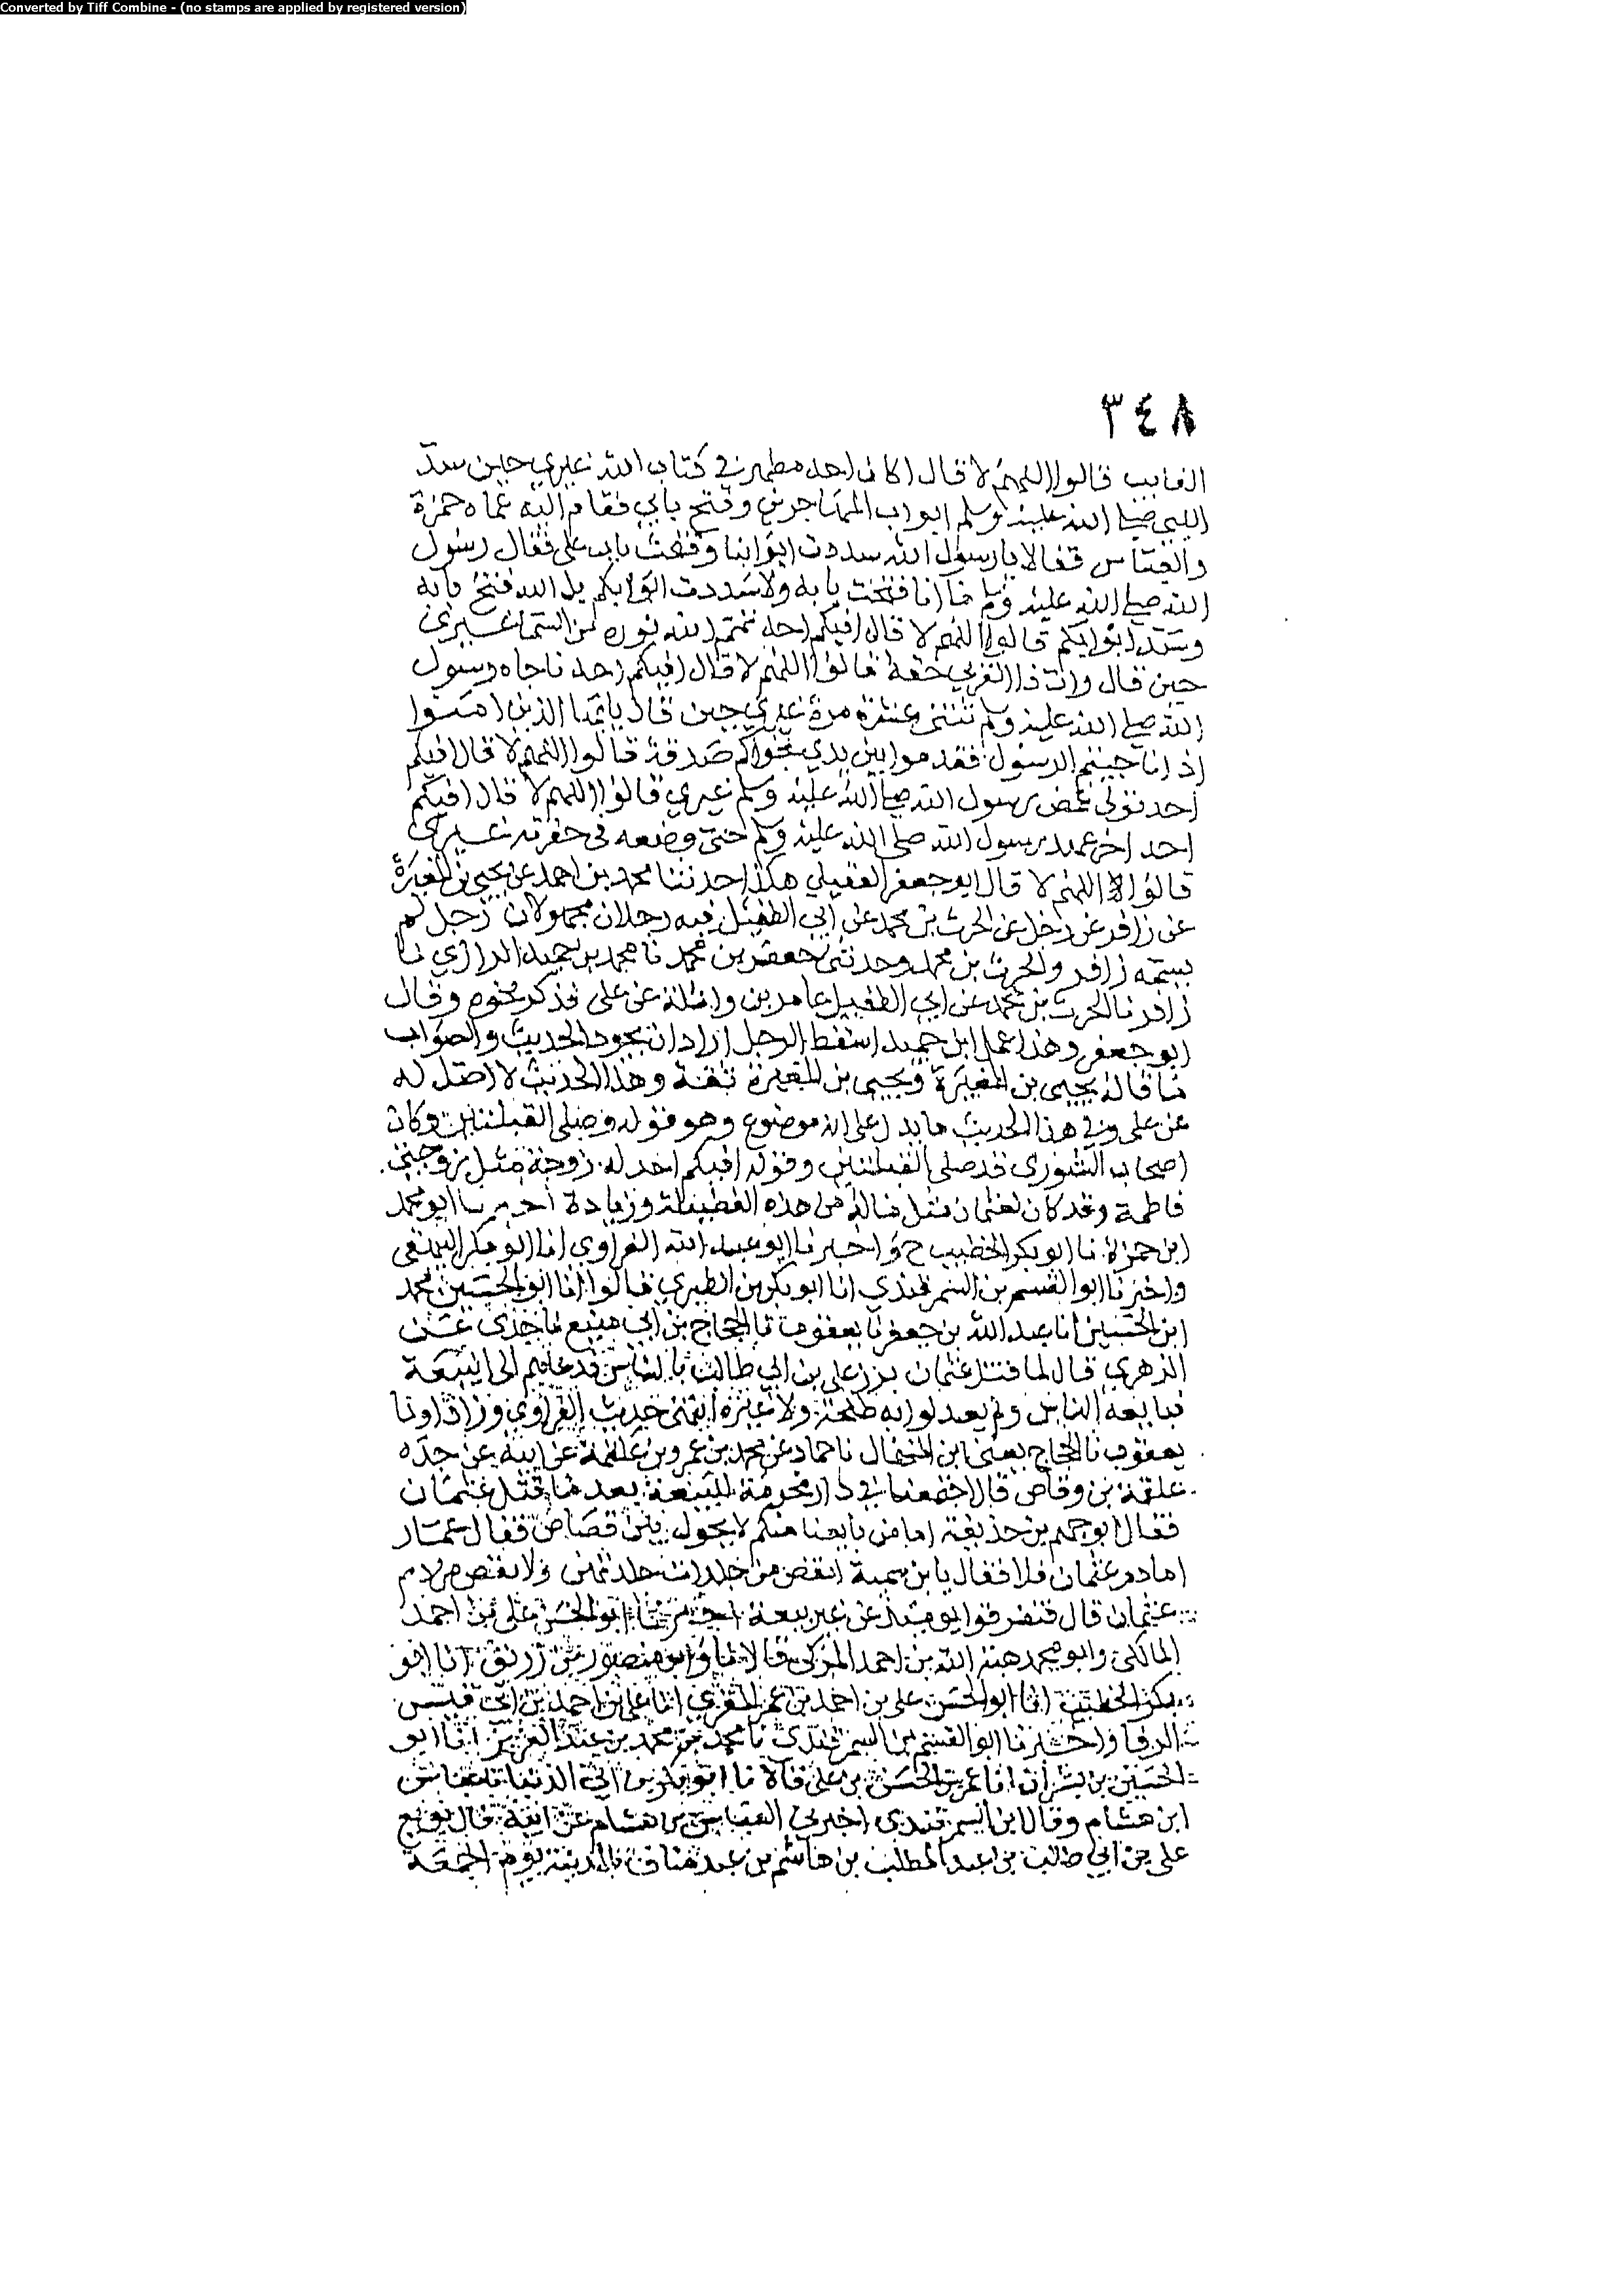 Converted by Tiff Combine - (no stamps are applied by registered version)
٣٤٨
الغايب قالوا اللهم لا قال اكان احد مطهر في كتاب الله غيري حين سد
النبي صلى الله عليه وسلم ابواب المهاجرين وفتح بابي فقام اليه عماه حمزة
والعباس فقالا يا رسول الله سددت ابوابنا وفتحت باب علي فقال رسول
الله صلى الله عليه وسلم ما انا فتحت بابه ولا سددت ابوابكم بل الله فتح بابه
وسد ابوابكم قالوا اللهم لا قال افيكم احد تمم الله نوره من السما غيري
حين قال وات ذا القربى حقه قالوا اللهم لا قال افيكم احد ناجاه رسول
الله صلى الله عليه وسلم ثنتى عشرة مرة غيري حين قال يايها الذين امنوا
اذا ناجيتم الرسول فقدموا بين يدي نجواكم صدقة قالوا اللهم لا قال افيكم
احد تولى غمض رسول الله صلى الله عليه وسلم غيري قالوا اللهم لا قال افيكم
احد اخر عهد برسول الله صلى الله عليه وسلم حتى وضعه في حفرته غيري
قالوا اللهم لا قال ابو جعفر العقيلي هكذا حدثنا محمد بن احمد عن يحيى بن المغيرة
عن زافر عن رجل عن الحرث بن محمد عن ابي الطفيل فيه رجلان مجهولان رجل لم
يسمه زافر والحرث بن محمد وحدثني جعفر بن محمد نا محمد بن حميد الرازي نا
زافر نا الحرث بن محمد عن ابي الطفيل عامر بن واثلة عن علي فذكر نحوه وقال
ابو جعفر وهذا عمل ابن حميد اسقط الرجل اراد ان يجود الحديث والصواب
ما قاله يحيى بن المغيرة ويحيى بن المغيرة ثقة وهذا الحديث لا اصل له
عن علي وفي هذا الحديث ما يدل على انه موضوع وهو قوله وصلى القبلتين وكان
اصحاب الشورى قد صلى القبلتين وقوله افيكم احد له زوجة مثل زوجتي
فاطمة وقد كان لعثمان مثل ماله من هذه الفضيلة وزيادة اخبرنا ابو محمد
ابن حمزة نا ابو بكر الخطيب ح واخبرنا ابو عبد الله الفراوي انا ابو بكر البيهقي
واخبرنا ابو القسم بن السمرقندي انا ابو بكر بن الطبري قالوا انا ابو الحسين محمد
ابن الحسين انا عبد الله بن جعفر نا يعقوب نا الحجاج بن ابي منيع نا جدي عن
الزهري قال لما قتل عثمان برز علي بن ابي طالب بالناس فدعاهم الى البيعة
فبايعه الناس ولم يعدلوا به طلحة ولا غيره انتهى حديث الفراوي وزادا ونا
يعقوب نا الحجاج يعني ابن المنهال نا حماد عن محمد بن عمرو بن علقمة عن ابيه عن جده
علقمة بن وقاص قال اجتمعنا في دار مخرمة للبيعة بعد ما قتل عثمان
فقال ابو جهم بن حذيفة اما من بايعنا منكم لا يحول بين قصاص فقال عمار
اما دم عثمان فلا فقال يا ابن سمية اتقص من جلدات جلدتهن ولا تقص من دم
عثمان قال فتفرقوا يوميذ عن غير بيعة اخبرنا ابو الحسن علي بن احمد
المالكي وابو محمد هبة الله بن احمد المزكي قالا نا وابو منصور بن زريق انا ابو
بكر الخطيب انا ابو الحسن علي بن احمد بن عمر المقري انا علي بن احمد بن ابي قيس
الرفا واخبرنا ابو القسم بن السمرقندي نا محمد بن محمد بن عبد العزيز انا ابو
الحسين بن بشران انا عمر بن الحسن بن علي قالا نا ابو بكر بن ابي الدنيا نا عباس
ابن هشام وقال ابن السمرقندي اخبرني العباس بن هشام عن ابيه قال بويع
علي بن ابي طالب بن عبد المطلب بن هاشم بن عبد مناف بالمدينة يوم الجمعة